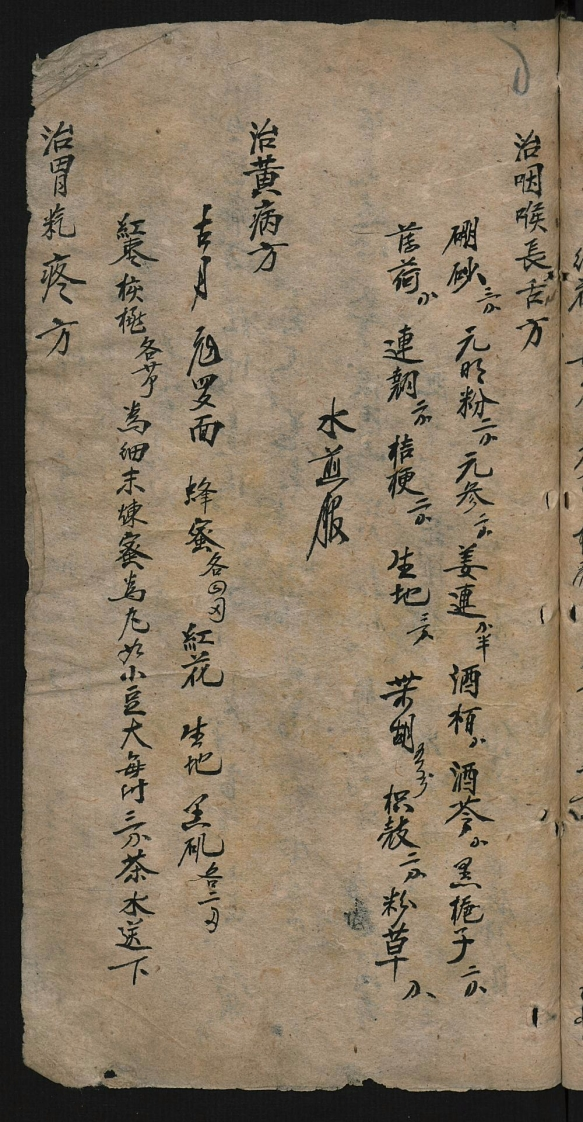 治咽喉長舌方
硼砂二分 元明粉二分 元参二分 姜連分半 酒栢分 酒芩分 黒梔子二分
荷分 連翹二分 桔梗二分 生地三 柴胡五分 枳殼二分 粉草分
水煎服
治黄病方
古月 面 蜂蜜各四 紅花 生地 黑矾各二
紅枣 核桃 各 為細末煉蜜為丸如小豆大每付三分茶水送下
治胃氣疼方